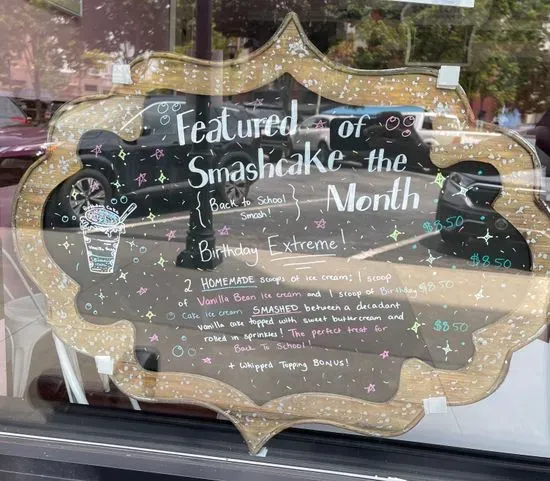 Featured of
Smashcake the
Month
{ Back to School
Smash! }
Birthday Extreme!
2 HOMEMADE scoops of ice cream; 1 scoop
of Vanilla Bean ice cream and 1 scoop of Birthday
Cake ice cream SMASHED between a decadant
vanilla cake topped with sweet buttercream and
rolled in sprinkles! The perfect treat for
Back To School!
+ Whipped Topping BONUS!
$8.50
$8.50
$8.50
$8.50